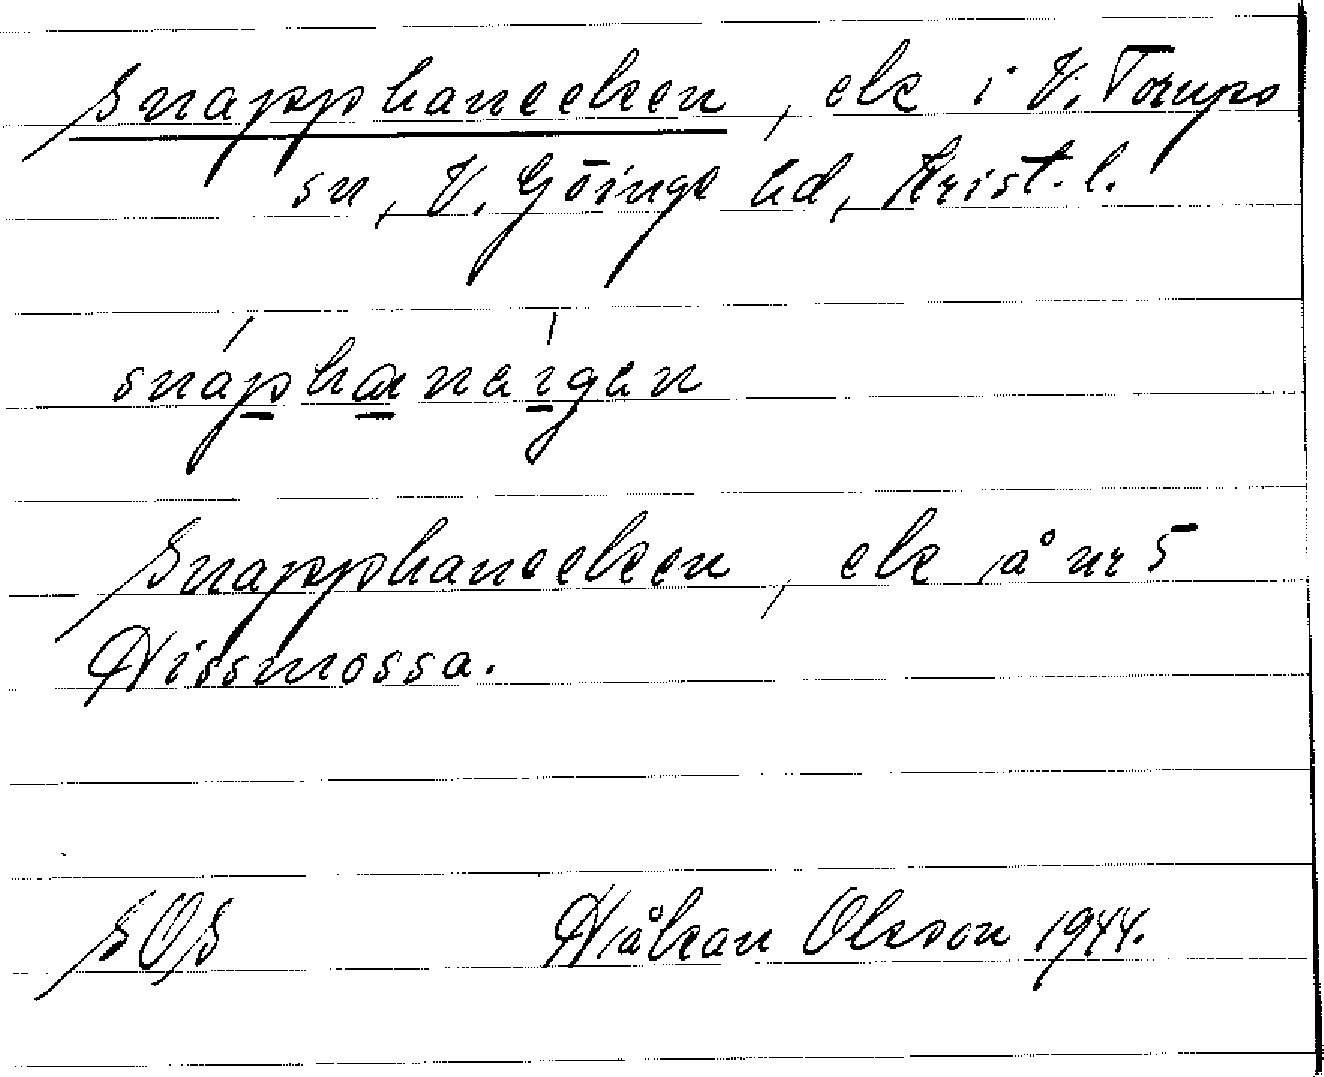 Snapphaneeken, ek i V. Torups
sn, V. Göinge hd, Krist. l.
snáphɑneígen
Snapphaneeken, ek å nr 5
Hissmossa.
SOS Håkan Olsson 1944.